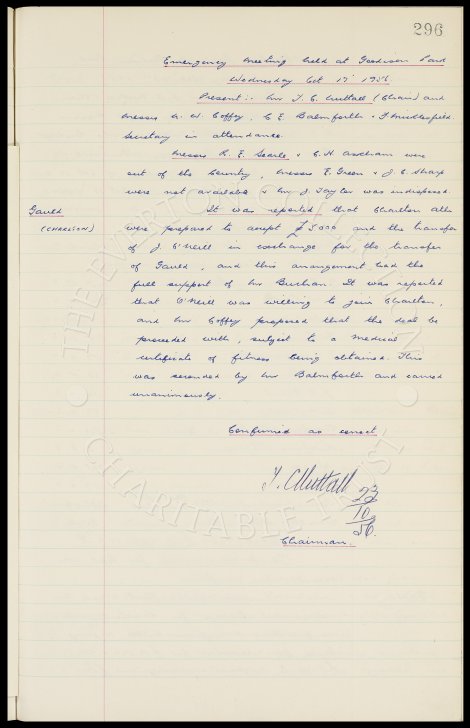 296
Emergency meeting held at Goodison Park
Wednesday Oct 17' 1956.
Present:- Mr T. C. Nuttall (Chair) and
Messrs N. W. Coffey, C. E. Balmforth & F. Micklesfield
Secretary in attendance.
Messrs R. E. Searle & E. H. were
out of the Country, Messrs E. Green & J. C. Sharp
were not available & Mr J. Taylor was indisposed.
Gauld
(CHARLTON)
It was reported that Charlton Ath
were prepared to accept £5000 and the transfer
of J. O'Neill in exchange for the transfer
of Gauld, and this arrangement had the
full support of Mr Buchan. It was reported
that O'Neill was willing to join Charlton,
and Mr Coffey proposed that the deal be
proceeded with, subject to a medical
certificate of fitness being obtained. This
was seconded by Mr Balmforth and carried
unanimously.
Confirmed as correct
T. C Nuttall
23
10
56.
Chairman.
THE EVERTON COLLECTION
CHARITABLE TRUST